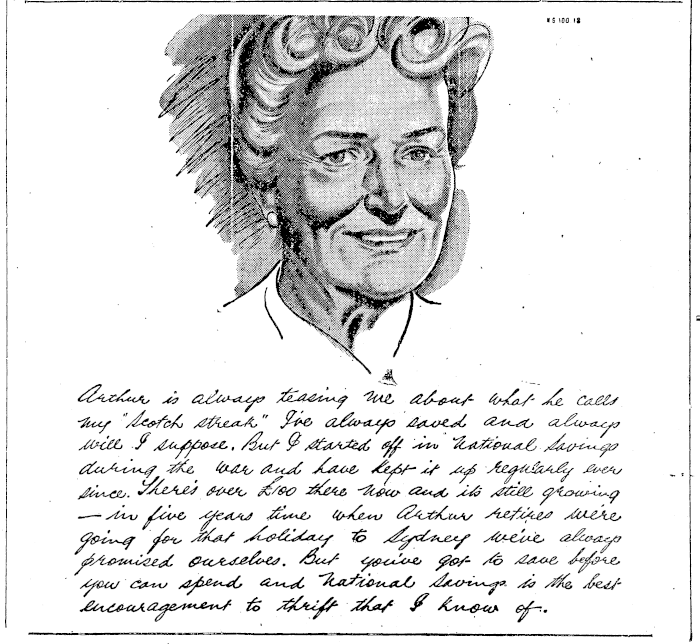 N S 100 12
Arthur is always teasing me about what he calls
my "Scotch streak" I've always saved and always
will I suppose. But I started off in National Savings
during the war and have kept it up regularly ever
since. There's over £100 there now and its still growing
— in five years time when Arthur retires we're
going for that holiday to Sydney we've always
promised ourselves. But you've got to save before
you can spend and National Savings is the best
encouragement to thrift that I know of.